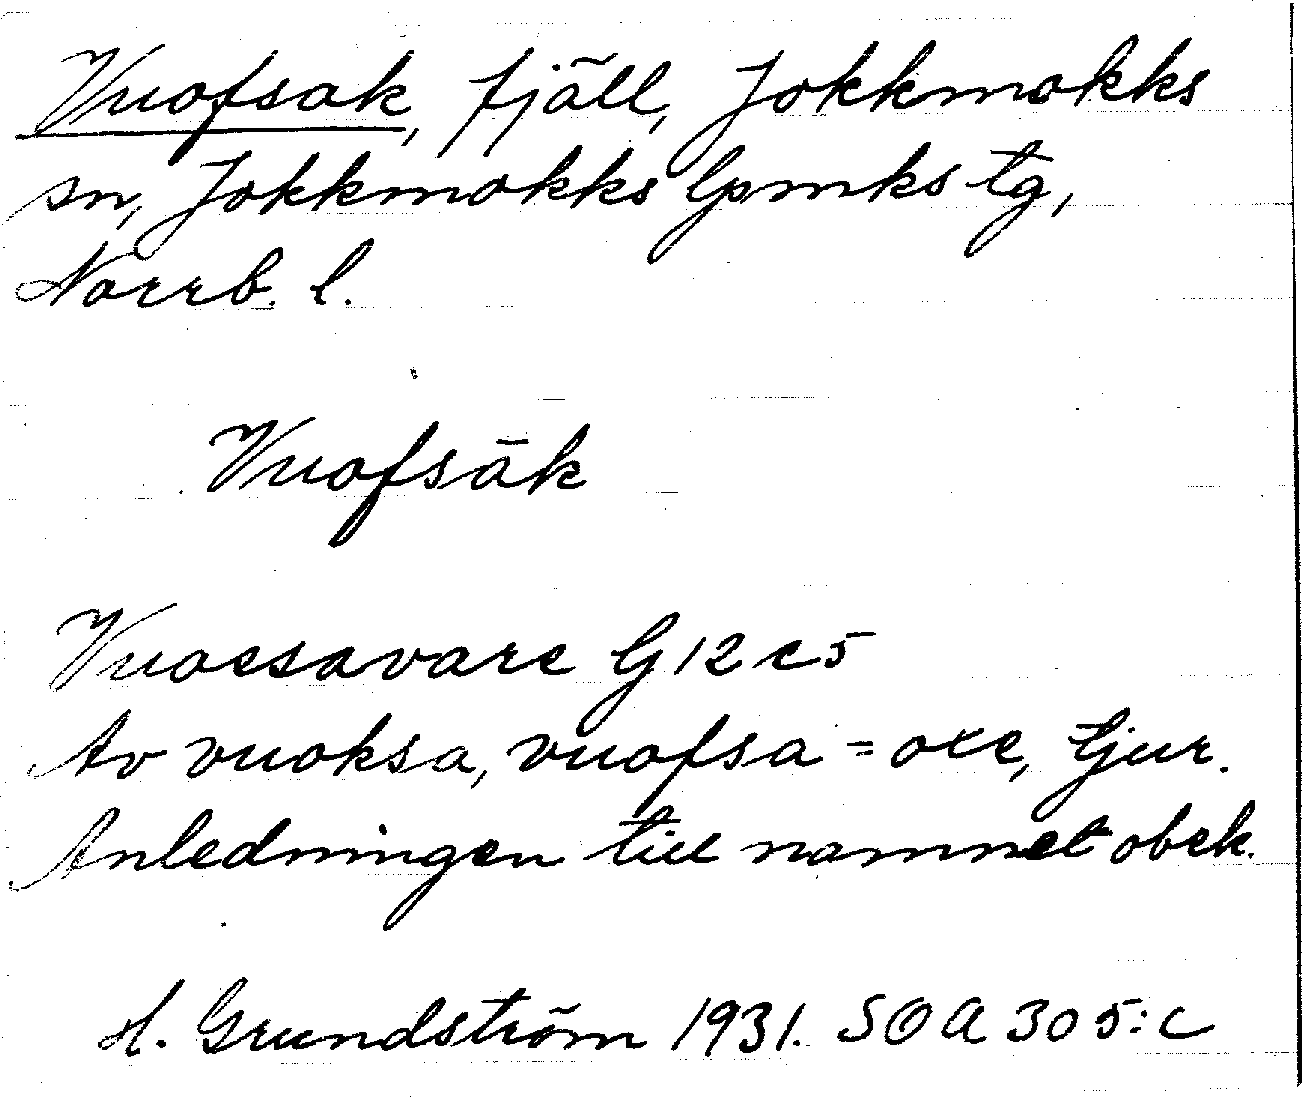 Vuofsak, fjäll, Jokkmokks
sn, Jokkmokks lpmks tg,
Norrb. l.
Vuofsāk
Vuoksavare G 12 c 5
Av vuoksa, vuofsa = oxe, tjur.
Anledningen till namnet obek.
H. Grundström 1931. SOA 305:c